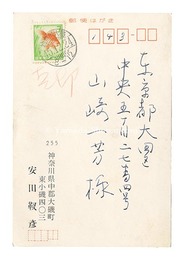 郵便はがき
143
東京都大田区
中央五丁目二七ノ四号
山崎一芳様
255
神奈川県中郡大磯町
東小磯四〇三
安田靫彦